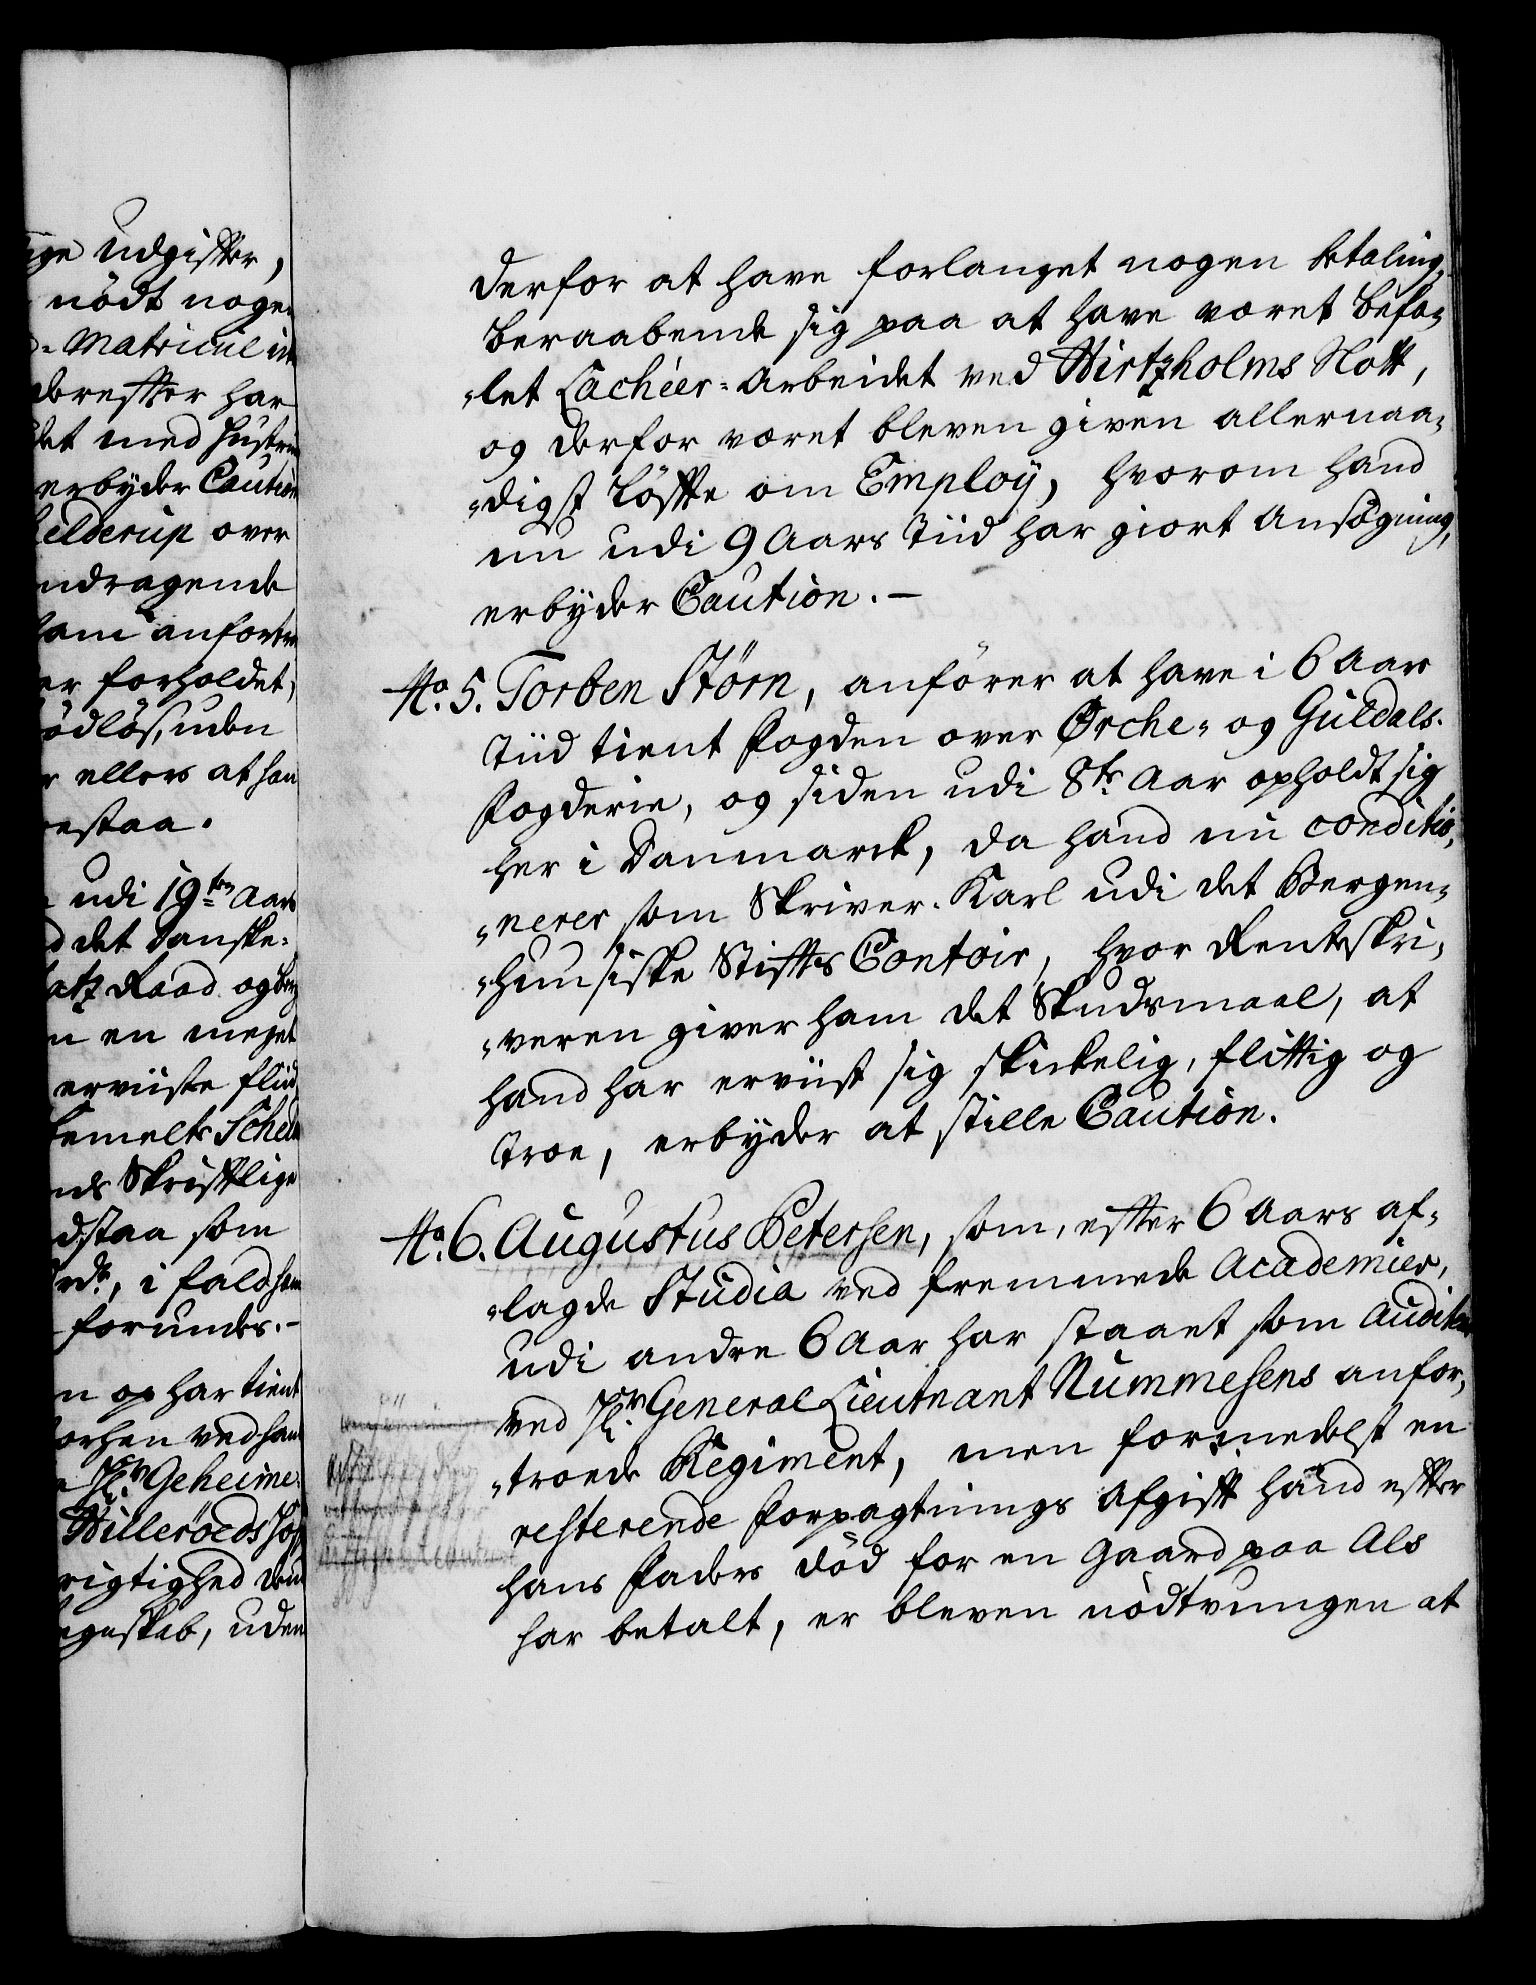 ige Udgifter,
nödt nogen
d- Matricul
derefter har
det med Hustru
erbyder Caution
elderup over
ndragende
ham anfortro
er forholdet,
ödlös, uden
r ellers at han
estaa.
udi 19ten Aars
d det Danske-
Raad og
n en meget
erviiste fliid
bemelte
nds Skrifftlige
dstaa som
i fald han
forundes.-
n og har tient
forhen ved ham
Hr. Geheime
Hilleröeds
rigtighed
egnskab, uden
derfor at have forlanget nogen betaling,
beraabende sig paa at have været befa-
-let Cachéer-Arbeidet ved Hirtzholms Slott,
og derfor været bleven given allernaa-
-digst Löffte om Employ, hvorom hand
nu udi 9 Aars Tiid har giort Ansögning,
erbyder Caution.-
No. 5. Torben Störn, anförer at have i 6 Aar
Tiid tient Fogden over Ørche- og Guldals-
Fogderie, og siden udi 8te Aar opholdt sig
her i Danmarck, da hand nu conditio-
-nerer som Skriver-Karl udi det Bergen-
-huusiske Stiffts Contoir, hvor Renteskri-
-veren giver ham det Skudsmaal, at
hand har erviist sig skickelig, flittig og
troe, erbyder at stille Caution.
No. 6. Augustus Petersen, som, efter 6 Aars af-
-lagde Studia ved fremmede Academier,
udi andre 6 Aar har staaet som Auditeur
ved Hr. General Lieutnant Nummesens anfor-
-troede Regiment, men formedelst en
resterende Forpagtnings Afgifft hand effter
hans Faders död for en Gaard paa Als
har betalt, er bleven nödtvungen at